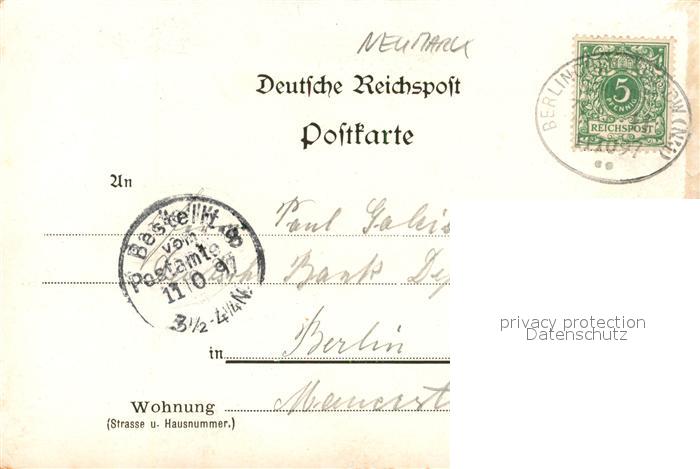 NEUMARK
Deutsche Reichspost
Postkarte
5
PFENNIG
REICHSPOST
BERLIN
11 10 97
An
Bestellt
vom
Postamte
11/10 97
3½-4¼N.
Paul
Bank
in Berlin
Wohnung
(Strasse u. Hausnummer.)
privacy protection
Datenschutz